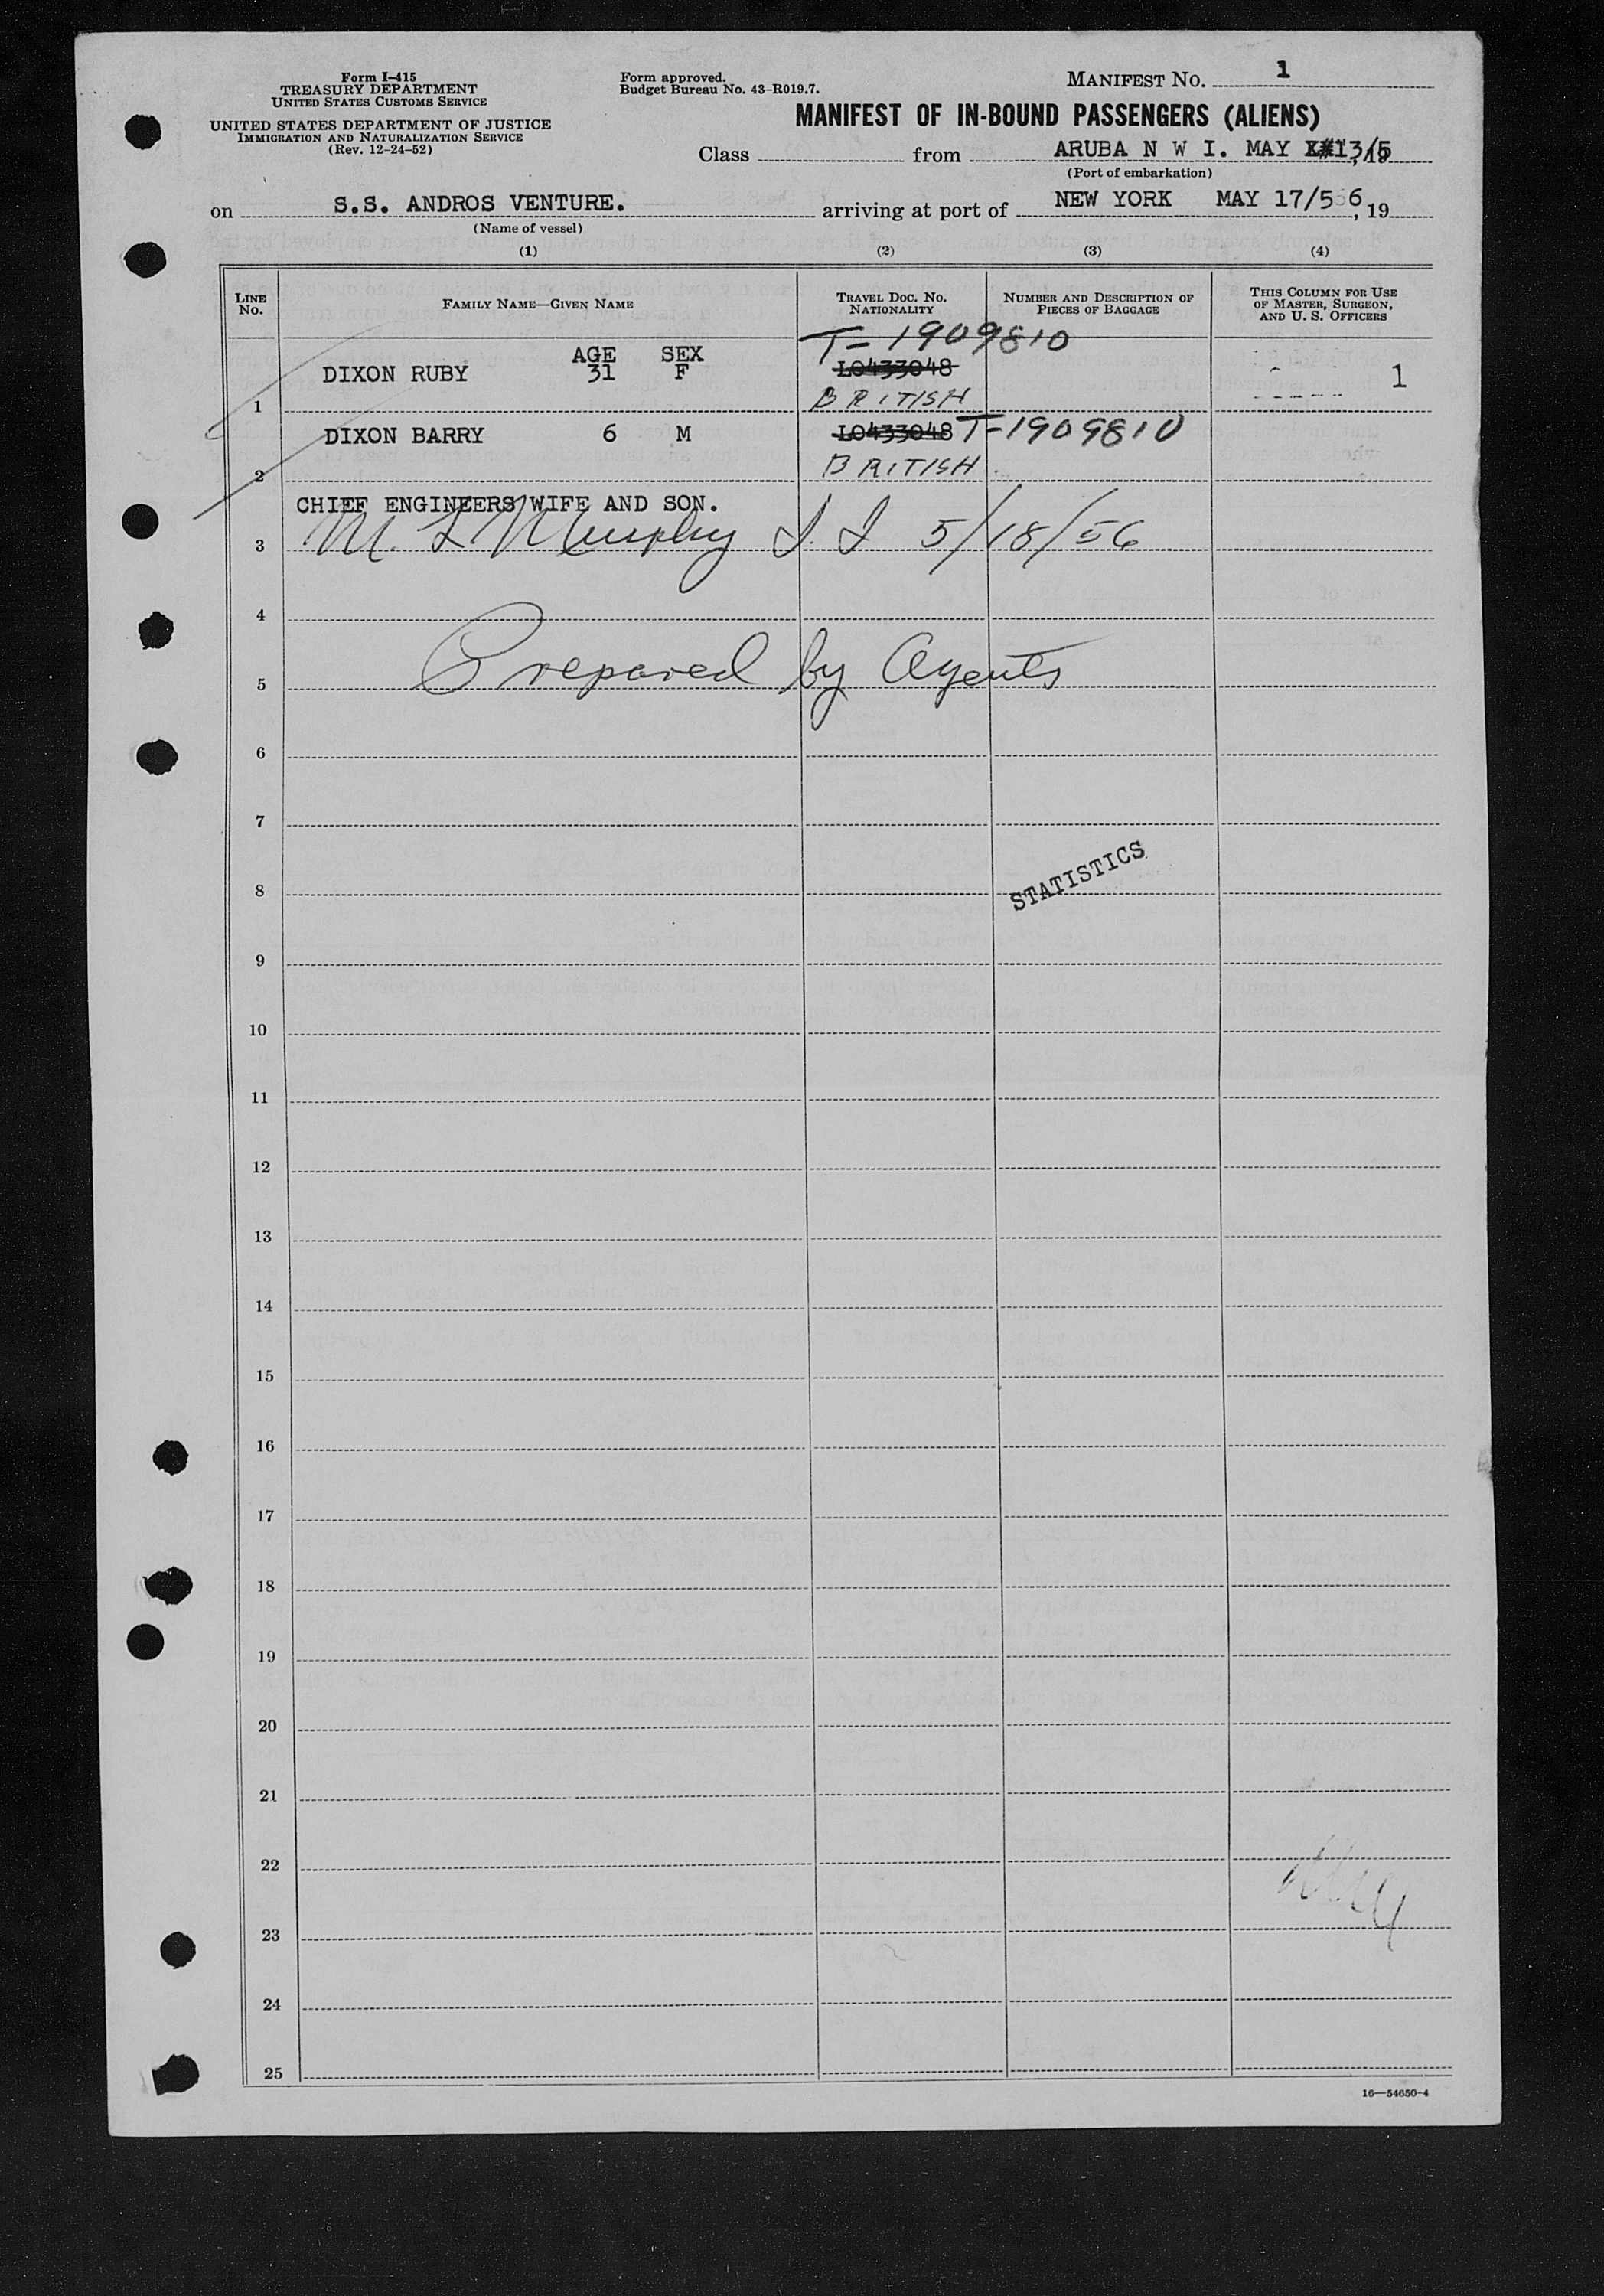 Form I-415
TREASURY DEPARTMENT
UNITED STATES CUSTOMS SERVICE
UNITED STATES DEPARTMENT OF JUSTICE
IMMIGRATION AND NATURALIZATION SERVICE
(Rev. 12-24-52)
Form approved.
Budget Bureau No. 43-R019.7.
MANIFEST NO. 1
MANIFEST OF IN-BOUND PASSENGERS (ALIENS)
Class from ARUBA N W I. MAY 13/5
(Port of embarkation)
on S.S. ANDROS VENTURE. arriving at port of NEW YORK MAY 17/56, 19
(Name of vessel)
(1) (2) (3) (4)
LINE No.
FAMILY NAME—GIVEN NAME
TRAVEL DOC. NO. NATIONALITY
NUMBER AND DESCRIPTION OF PIECES OF BAGGAGE
THIS COLUMN FOR USE OF MASTER, SURGEON, AND U. S. OFFICERS
T-1909810
AGE SEX
DIXON RUBY 31 F LO433048 1
1 BRITISH
DIXON BARRY 6 M LO433048 T-1909810
2 BRITISH
CHIEF ENGINEERS WIFE AND SON.
3 M. L Murphy I. I 5/18/56
4
5 Prepared by Agents
6
7
STATISTICS
8
9
10
11
12
13
14
15
16
17
18
19
20
21
22
23
24
25
16—54650-4